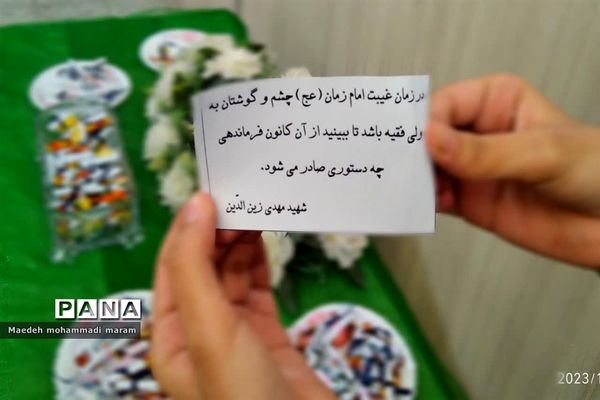 در زمان غیبت امام زمان (عج) چشم و گوشتان به
ولی فقیه باشد تا ببینید از آن کانون فرماندهی
چه دستوری صادر می شود.
شهید مهدی زین الدّین
PANA
Maedeh mohammadi maram
2023/1